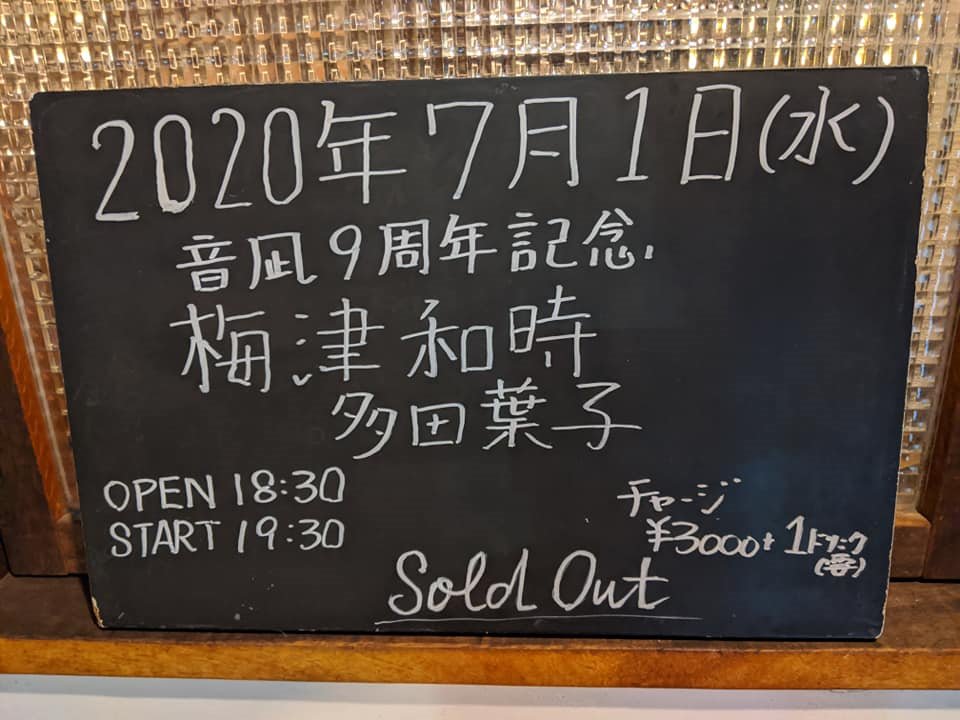 2020年7月1日(水)
音凪9周年記念
梅津和時
多田葉子
OPEN 18:30
START 19:30
チャージ
¥3000+1ドリンク
Sold Out